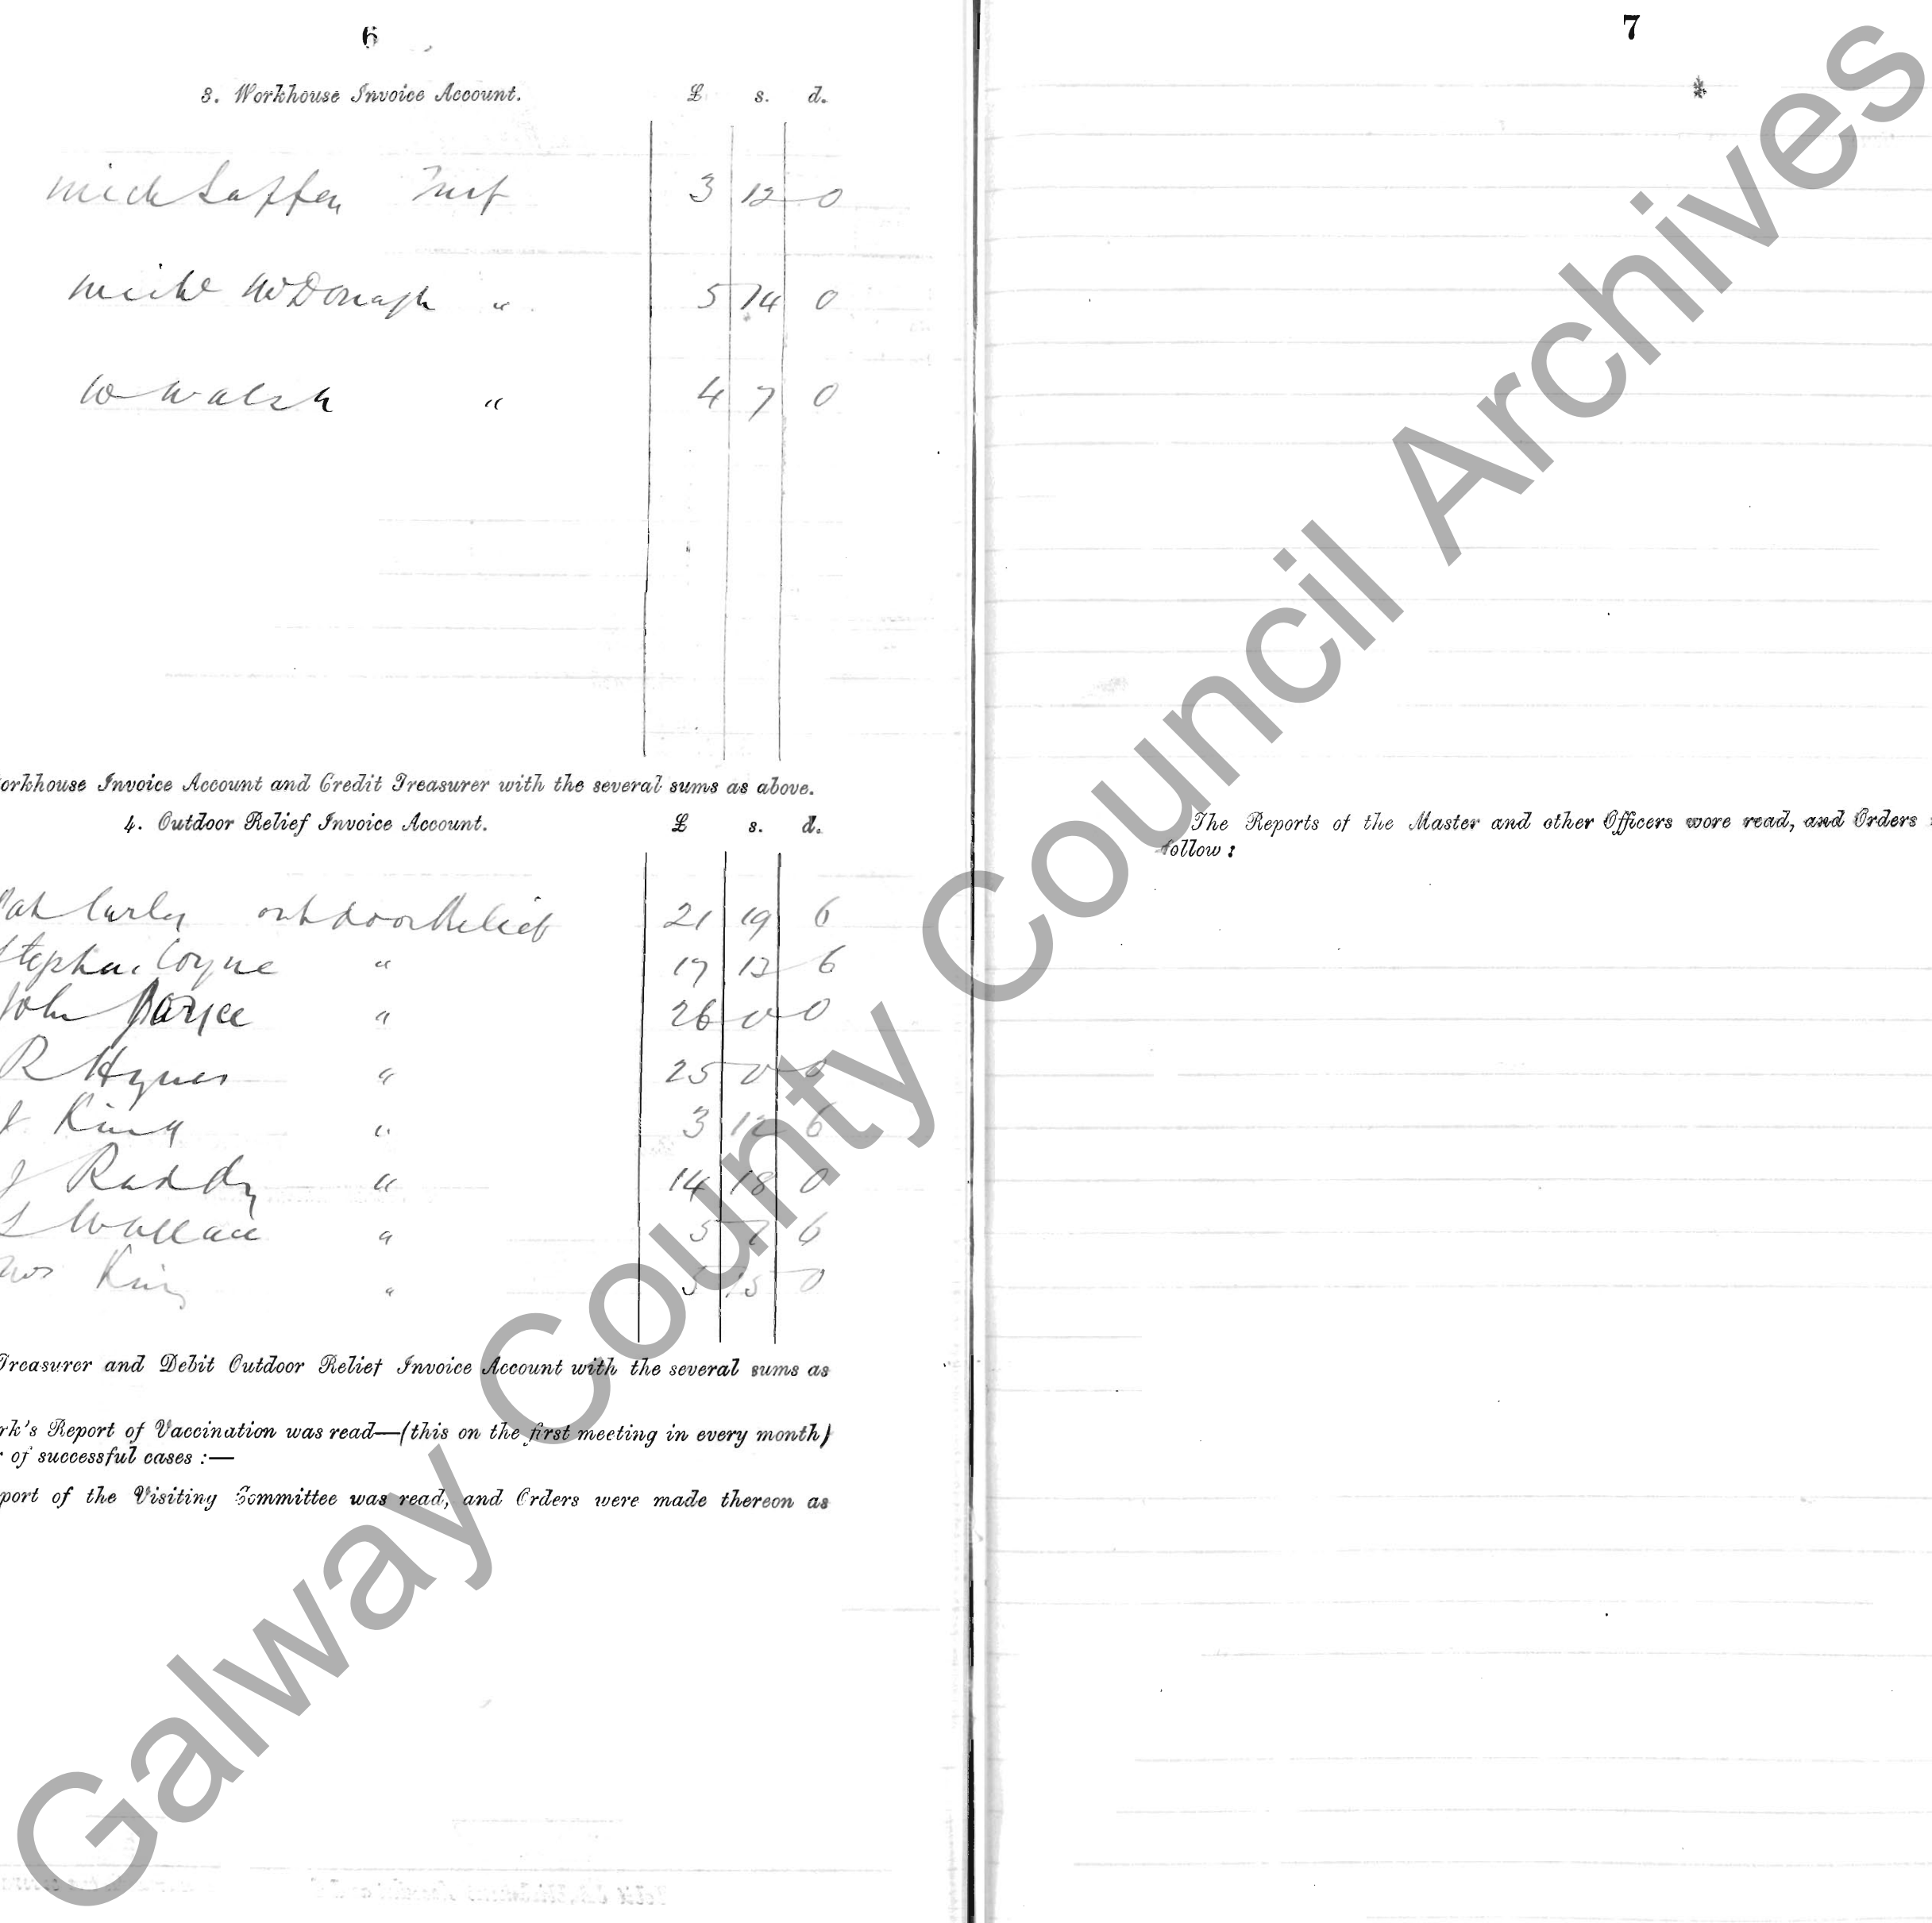 6
3. Workhouse Invoice Account. £ s. d.
Mich Laffey Turf 3 12 0
Michl McDonagh " 5 14 0
W Walsh " 4 7 0
orkhouse Invoice Account and Credit Treasurer with the several sums as above.
4. Outdoor Relief Invoice Account. £ s. d.
Pat Curley outdoor Relief 21 19 6
Stephen Coyne " 17 12 6
John Joyce " 26 0 0
R Hynes " 25 0 0
J King " 3 12 6
J Ruddy " 14 18 0
L Wallace " 5 7 6
King " 5 15 0
Treasurer and Debit Outdoor Relief Invoice Account with the several sums as
rk's Report of Vaccination was read—(this on the first meeting in every month)
r of successful cases :—
port of the Visiting Committee was read, and Orders were made thereon as
7
The Reports of the Master and other Officers were read, and Orders
follow :
Galway County Council Archives